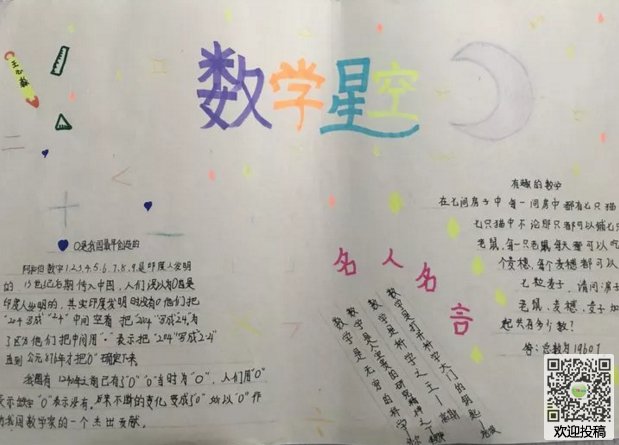 数学星空
0是我国最早创造的
阿拉伯数字1.2.3.4.5.6.7.8.9.是印度人发明
的
印度人发明的,其实印度发明时没有0他们把
"204"写成"2 4"中间空着 把"2204"写成"2.4"有
了区分他们把中间用"·"表示把"204"写成"2·4"
直到公元876年才把"0"确定下来。
我国在1240年之前已有了"0" "0"当时为"0", 人们用"0"
表示数字"0"表示没有,
为我国数学家的一个杰出贡献。
名人名言
数学是打开科学大门的钥匙
数学是科学之王
数学是无穷的科学
有趣的数学
在七间房子中每一间房中都有七只猫
七只猫中不论那只都可以捕七只
老鼠,每一只老鼠每天都可以吃
个麦穗,每个麦穗都可以
七粒麦子,请问:房子
老鼠,麦穗,麦子加
起共有多少数?
答:总数为19607
欢迎投稿